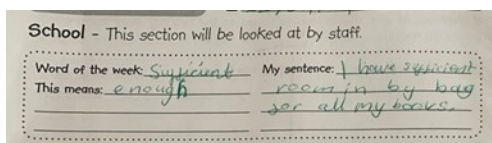 School - This section will be looked at by staff.
Word of the week: Sufficient
This means: enough
My sentence: I have sufficient
room in by bag
for all my books.